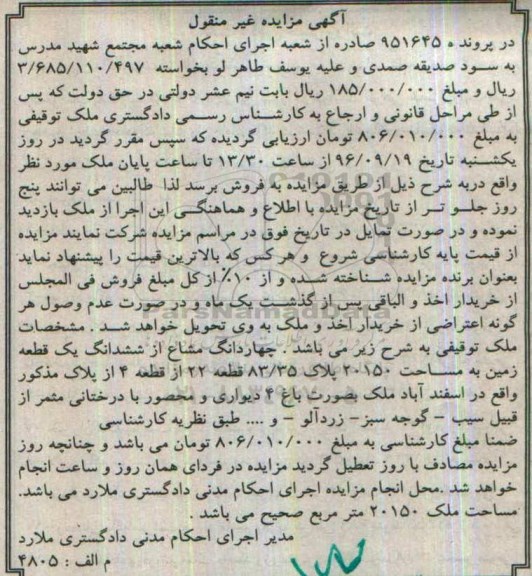 آگهی مزایده غیر منقول
در پرونده ۹۵۱۶۴۵ صادره از شعبه اجرای احکام شعبه مجتمع شهید مدرس
به سود صدیقه صمدی و علیه یوسف طاهر لو بخواسته ۳/۶۸۵/۱۱۰/۴۹۷
ریال و مبلغ ۱۸۵/۰۰۰/۰۰۰ ریال بابت نیم عشر دولتی در حق دولت که پس
از طی مراحل قانونی و ارجاع به کارشناس رسمی دادگستری ملک توقیفی
به مبلغ ۸۰۶/۰۱۰/۰۰۰ تومان ارزیابی گردیده که سپس مقرر گردید در روز
یکشنبه تاریخ ۹۶/۰۹/۱۹ از ساعت ۱۳/۳۰ تا ساعت پایان ملک مورد نظر
واقع دربه شرح ذیل از طریق مزایده به فروش برسد لذا طالبین می توانند پنج
روز جلو تر از تاریخ مزایده با اطلاع و هماهنگی این اجرا از ملک بازدید
نموده و در صورت تمایل در تاریخ فوق در مراسم مزایده شرکت نمایند مزایده
از قیمت پایه کارشناسی شروع و هر کس که بالاترین قیمت را پیشنهاد نماید
بعنوان برنده مزایده شناخته شده و از ۱۰٪ از کل مبلغ فروش فی المجلس
از خریدار اخذ و الباقی پس از گذشت یک ماه و در صورت عدم وصول هر
گونه اعتراضی از خریدار اخذ و ملک به وی تحویل خواهد شد . مشخصات
ملک توقیفی به شرح زیر می باشد . چهاردانگ مشاع از ششدانگ یک قطعه
زمین به مساحت ۲۰۱۵۰ پلاک ۸۳/۳۵ قطعه ۲۲ از قطعه ۴ از پلاک مذکور
واقع در اسفند آباد ملک بصورت باغ ۴ دیواری و محصور با درختانی مثمر از
قبیل سیب – گوجه سبز– زردآلو – و .... طبق نظریه کارشناسی
ضمنا مبلغ کارشناسی به مبلغ ۸۰۶/۰۱۰/۰۰۰ تومان می باشد و چنانچه روز
مزایده مصادف با روز تعطیل گردید مزایده در فردای همان روز و ساعت انجام
خواهد شد .محل انجام مزایده اجرای احکام مدنی دادگستری ملارد می باشد.
مساحت ملک ۲۰۱۵۰ متر مربع صحیح می باشد .
مدیر اجرای احکام مدنی دادگستری ملارد
م الف : ۴۸۰۵
ParsNamadData